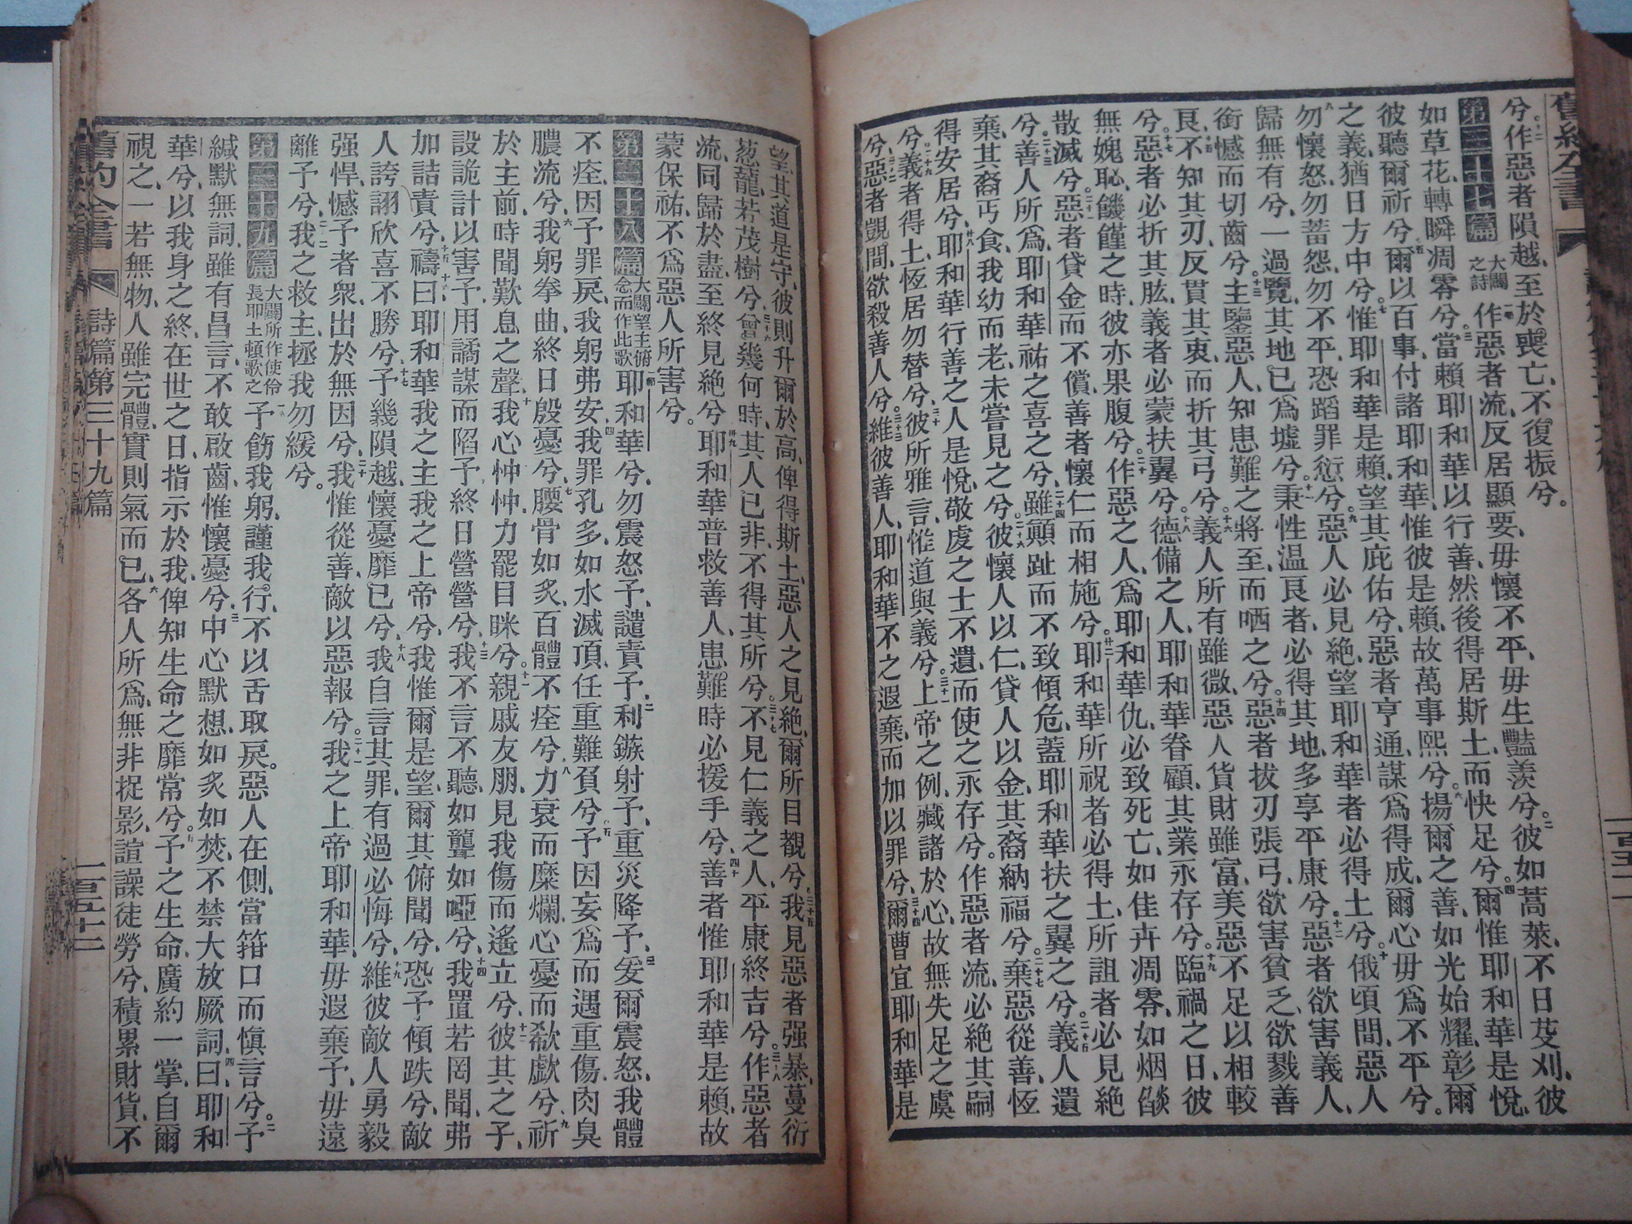 舊約全書
兮、作惡者隕越、至於喪亡、不復振兮。
第三十七篇 大闢之詩 作惡者流、反居顯要、毋懷不平、毋生豔羨兮。彼如蒿萊、不日芟刈、彼
如草花、轉瞬凋零兮、當賴耶和華以行善、然後得居斯土、而快足兮。爾惟耶和華是悅、
彼聽爾祈兮、爾以百事、付諸耶和華、惟彼是賴、故萬事熙兮。揚爾之善、如光始耀、彰爾
之義、猶日方中兮、惟耶和華是賴、望其庇佑兮、惡者亨通、謀為得成、爾心毋為不平兮。
勿懷怒、勿蓄怨、勿不平、恐蹈罪愆兮、惡人必見絕、望耶和華者、必得土兮。俄頃間、惡人
歸無有兮、一過覽、其地已為墟兮、秉性溫良者、必得其地、多享平康兮、惡者欲害義人、
銜憾而切齒兮、主鑒惡人、知患難之將至、而哂之兮、惡者拔刃張弓、欲害貧乏、欲戮善
良、不知其刃、反貫其衷、而折其弓兮、義人所有雖微、惡人貨財雖富、美惡不足以相較
兮。惡者必折其肱、義者必蒙扶翼兮。德備之人、耶和華眷顧、其業永存兮。臨禍之日、彼
無媿恥、饑饉之時、彼亦果腹兮、作惡之人、為耶和華仇、必致死亡、如佳卉凋零、如烟燄
散滅兮。惡者貸金而不償、善者懷仁而相施兮。耶和華所祝者、必得土、所詛者、必見絕
兮。善人所為、耶和華祐之喜之兮、雖顚趾而不致傾危、蓋耶和華扶之翼之兮。義人遺
棄、其裔丐食、我幼而老、未嘗見之兮。彼懷人以仁、貸人以金、其裔納福兮。棄惡從善、恆
得安居兮、耶和華行善之人是悅、敬虔之士不遺、而使之永存兮。作惡者流、必絕其嗣
兮、義者得土、恆居勿替兮、彼所雅言、惟道與義兮。上帝之例、藏諸於心、故無失足之虞
兮、惡者覬間、欲殺善人兮、維彼善人、耶和華不之遐棄、而加以罪兮、爾曹宜耶和華是
望、其道是守、彼則升爾於高、俾得斯土、惡人之見絕、爾所目覩兮、我見惡者強暴、蔓衍
葱蘢、若茂樹兮、曾幾何時、其人已非、不得其所兮。不見仁義之人、平康終吉兮。作惡者
流、同歸於盡、至終見絕兮、耶和華普救善人、患難時必援手兮、善者惟耶和華是賴、故
蒙保祐、不為惡人所害兮。
第三十八篇 大闢望主俯念而作此歌 耶和華兮、勿震怒予、譴責予、利鏃射予、重災降予、爰爾震怒、我體
不痊、因予罪戾、我躬弗安、我罪孔多、如水滅頂、任重難負兮、予因妄為而遇重傷、肉臭
膿流兮、我躬拳曲、終日殷憂兮、腰骨如炙、百體不痊兮、力衰而糜爛、心憂而欷歔兮、祈
於主前、時聞歎息之聲、我心忡忡、力罷目眯兮。親戚友朋、見我傷而遙立兮、彼其之子、
設詭計以害予、用譎謀而陷予、終日營營兮、我不言不聽、如聾如啞兮、我置若罔聞、弗
加詰責兮、禱曰、耶和華我之主、我之上帝兮、我惟爾是望、爾其俯聞兮、恐予傾跌兮、敵
人誇詡、欣喜不勝兮、予幾隕越、懷憂靡已兮、我自言其罪、有過必悔兮、維彼敵人、勇毅
强悍、憾予者衆、出於無因兮、我惟從善、敵以惡報兮。我之上帝耶和華、毋遐棄予、毋遠
離予兮、我之救主、拯我勿緩兮。
第三十九篇 大闢所作使伶長耶土頓歌之 予飭我躬、謹我行、不以舌取戾、惡人在側、當箝口而愼言兮。予
緘默無詞、雖有昌言、不敢啟齒、惟懷憂兮、中心默想、如炙如焚、不禁大放厥詞曰、耶和
華兮、以我身之終、在世之日、指示於我、俾知生命之靡常兮。予之生命、廣約一掌、自爾
視之、一若無物、人雖完體、實則氣而已、各人所為、無非捉影、諠譟徒勞兮、積累財貨、不
舊約全書 詩篇第三十九篇 一百五十二